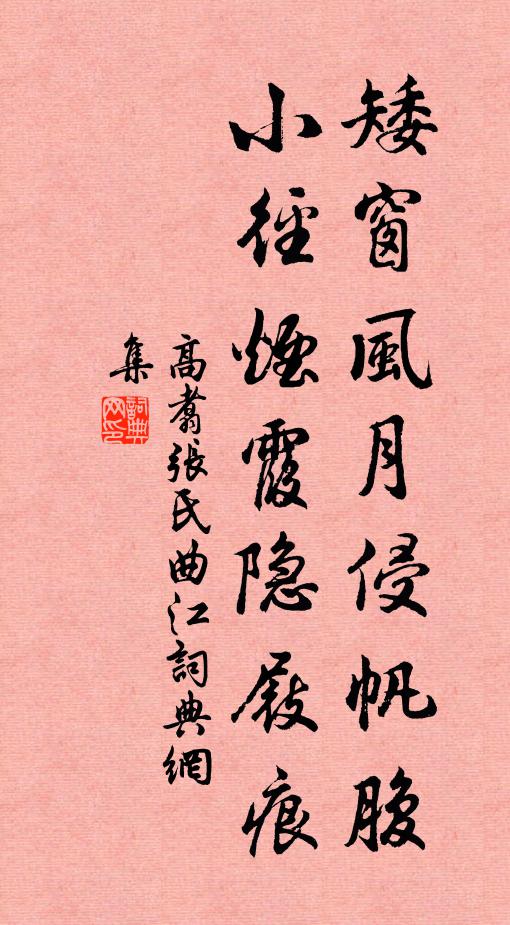 矮窗風月侵帆腹
小徑煙霞隐屐痕
高翥張氏曲江詞典網
集
詞典網印